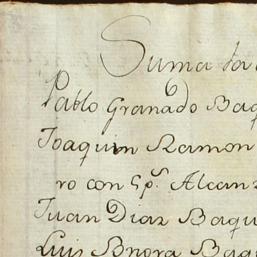 Suma la
Pablo Granado Baq
Joaquin Ramon
ro con Gp.ˢ Alcan
Juan Diaz Baqu
Luis Baq